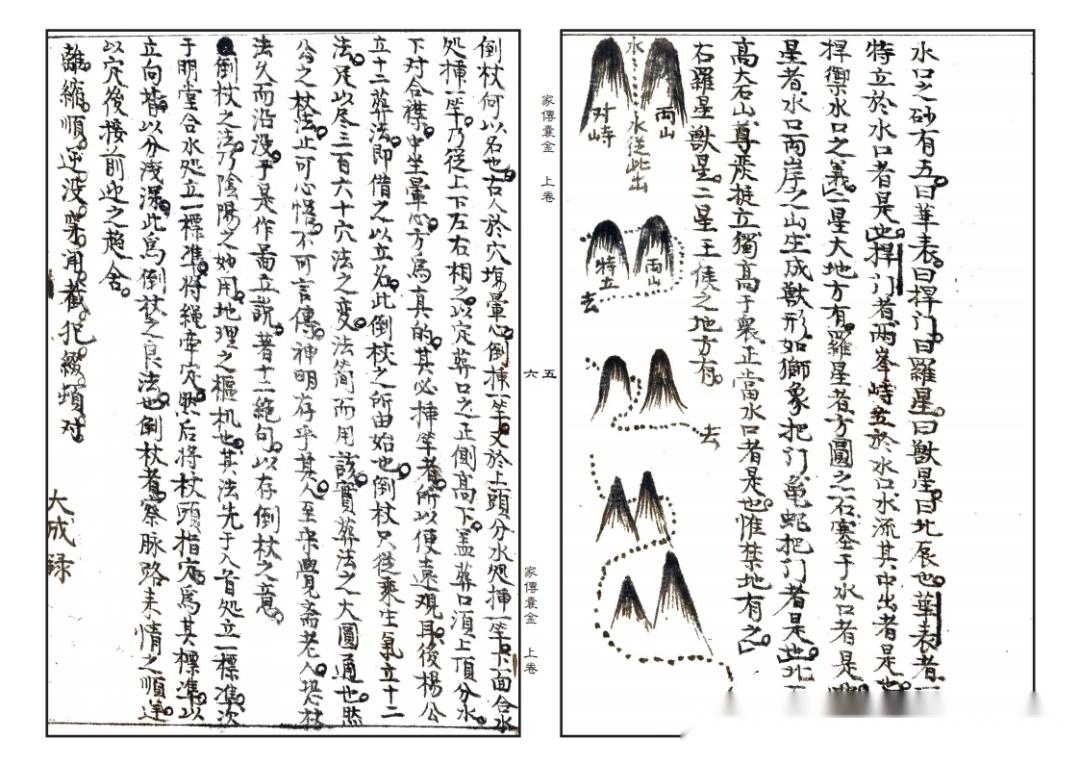 水口之砂有五曰華表曰捍门曰羅星曰獸星曰北辰也華表者
特立於水口者是也捍门者两峯峙立於水口水流其中出者是也
捍禦水口之義二星大地方有羅星者方圓之石塞于水口者是
星者水口両岸之山生成獸形如獅象把门亀蛇把门者是也北
高大石山尊严挺立獨高于衆正當水口者是也惟禁地有之
石羅星獸星二星王侯之地方有
両山
水
水從此出
对峙
両山
特立
去
去
家傳囊金 上卷
五
六
家傳囊金 上卷
倒杖何以名也古人於穴塲暈心倒揀一竿又於上頭分水処挿一竿下面合水
処挿一竿乃従上下左右相之以定葬口之正側高下盖葬口須上頂分水
下对合襟中坐暈心方為真的其必挿竿者所以便遠观耳後楊公
立十二葬法即借之以立名此倒杖之所由始也倒杖只従乘生氣立十二
法足以尽三百六十穴法之变法简而用該實葬法之大圓通也然
公之杖法止可心悟不可言傳神明存乎其人至宗覺斋老人恐杖
法久而沿没于是作畐立説著十二絶句以存倒杖之意
倒杖之法乃陰陽之妙用地理之樞机也其法先于入首処立一標准次
于明堂合水処立一標準将繩牵穴
后将杖頭指穴為其標準以
立向皆以分浅深此為倒杖之良法也倒杖者察脉路来情之順逆
以穴後接前迎之趋舍
離縮順逆没穿
截犯綴頓对
大成録